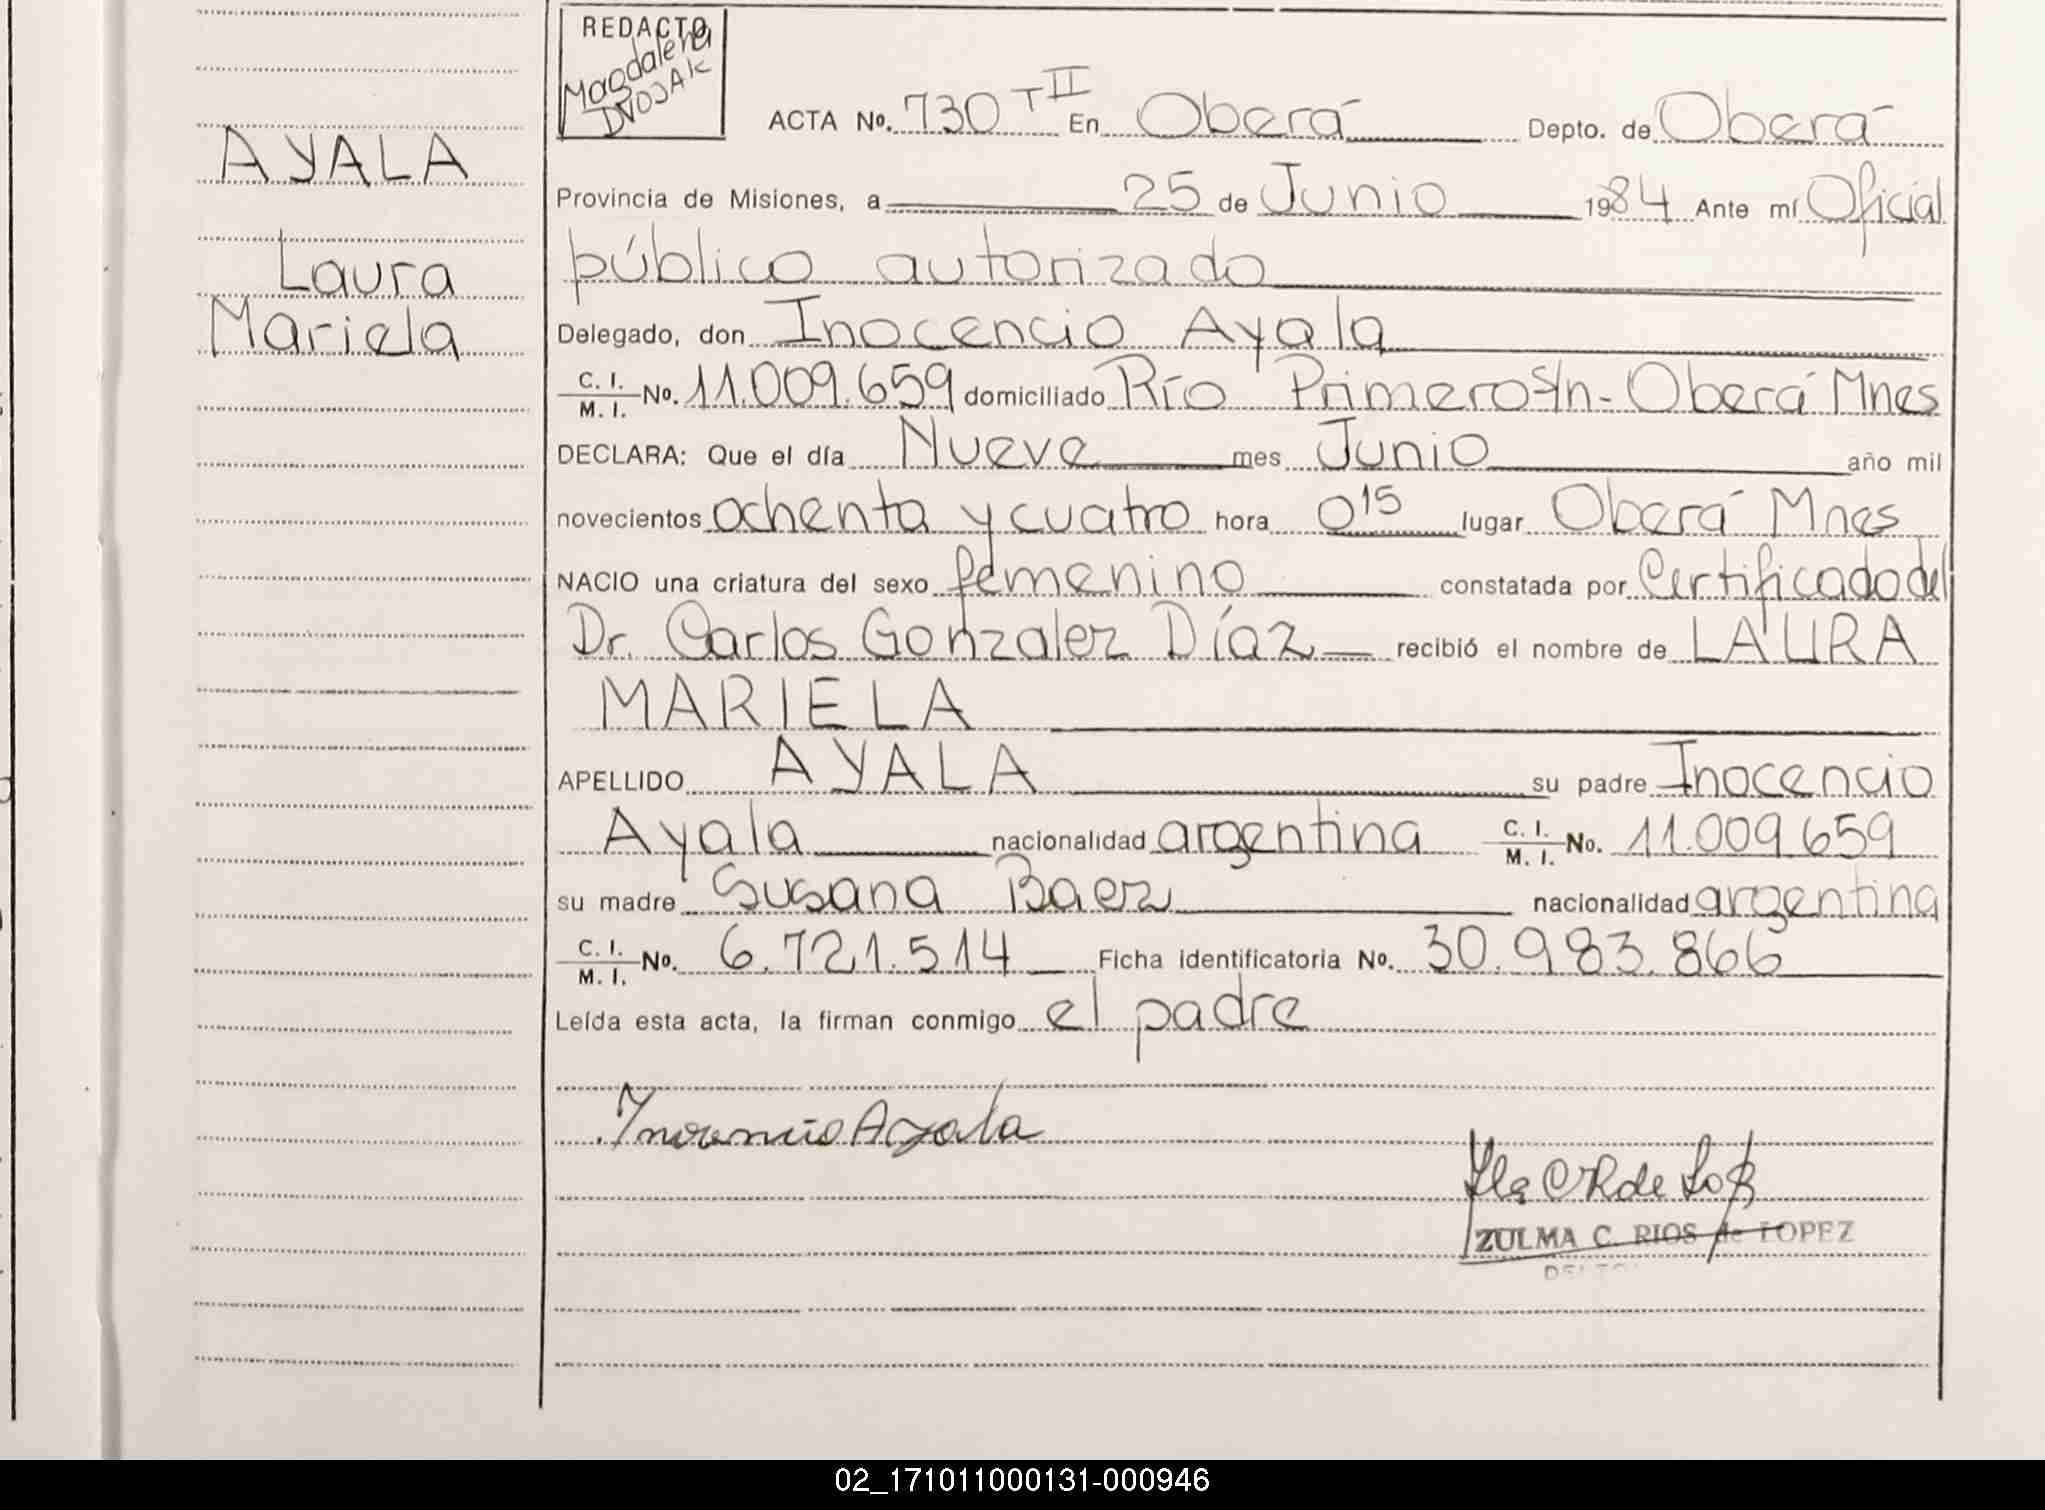 REDACTO
Magdalena
DVOJAK
AYALA
Laura
Mariela
ACTA No. 730 T II En Oberá Depto. de Oberá
Provincia de Misiones, a 25 de Junio 1984 Ante mí Oficial
público autorizado
Delegado, don Inocencio Ayala
C. I. / M. I. No. 11.009.659 domiciliado Río Primero S/n - Oberá Mnes
DECLARA: Que el día Nueve mes Junio año mil
novecientos ochenta y cuatro hora 0 15 lugar Oberá Mnes
NACIO una criatura del sexo femenino constatada por Certificado del
Dr. Carlos Gonzalez Díaz recibió el nombre de LAURA
MARIELA
APELLIDO AYALA su padre Inocencio
Ayala nacionalidad argentina C. I. / M. I. No. 11.009.659
su madre Susana Baez nacionalidad argentina
C. I. / M. I. No. 6.721.514 Ficha identificatoria No. 30.983.866
Leída esta acta, la firman conmigo el padre
Inocencio Ayala
ZULMA C. RIOS de LOPEZ
02_171011000131-000946